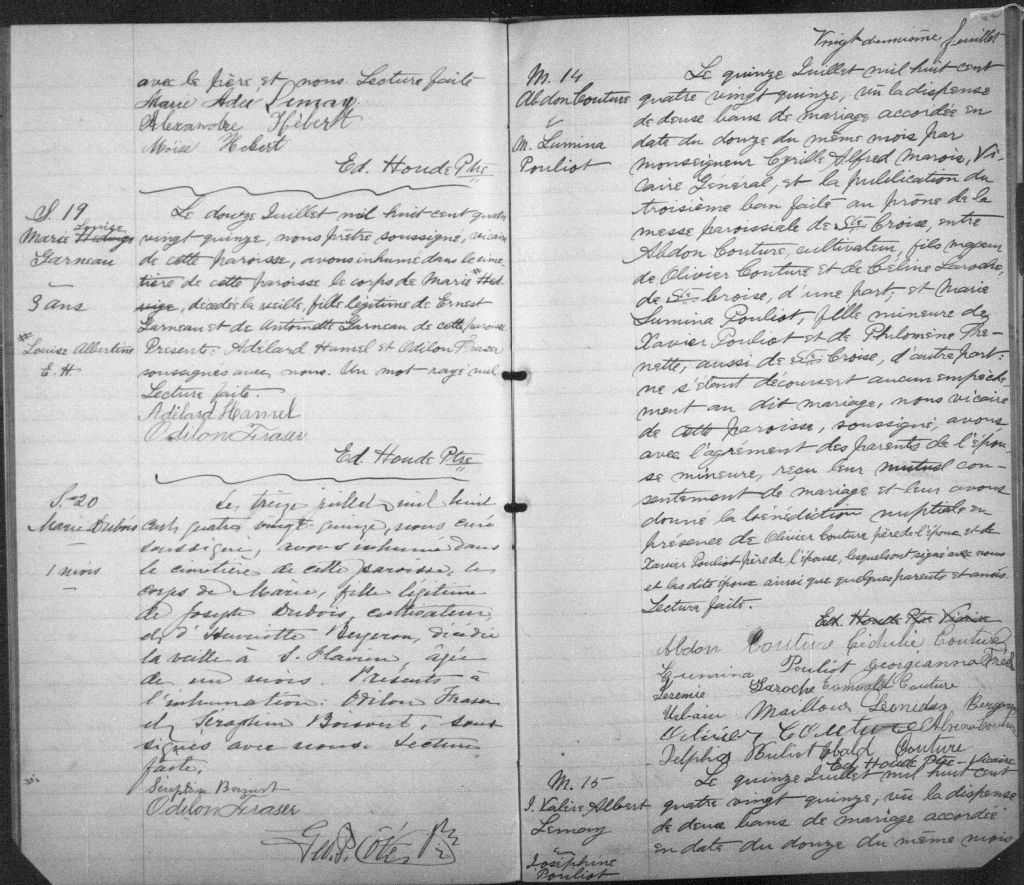 avec le père, et nous. Lecture faite
Marie Adée Lemay
Alexandre Hébert
Moïse Hebert
Ed. Houde Ptre
S. 19
Marie Louise Hedwige
Garneau
3 ans
Louise Albertine
E. H
Le douze Juillet mil huit cent quatre
vingt quinze, nous prêtre soussigné, vicaire
de cette paroisse, avons inhumé dans le cime
tière de cette paroisse le corps de Marie Hed
vige, décédée la veille, fille légitime de Ernest
Garneau et de Antoinette Garneau de cette paroisse.
Présents: Adélard Hamel et Odilon Fraser
soussignés avec nous. Un mot rayé nul
Lecture faite.
Adélard Hamel
Odilon Fraser
Ed. Houde Ptre
S. 20
Marie Dubois
1 mois
Le treize juillet mil huit
cent quatre vingt-quinze, nous curé
soussigné, avons inhumé dans
le cimetière de cette paroisse, le
corps de Marie, fille légitime
de Joseph Dubois, cultivateur
et d'Henriette Bergeron, décédée
la veille à S. Flavien, âgée
de un mois. Présents à
l'inhumation: Odilon Fraser
et Séraphin Boisvert, sous
signés avec nous. Lecture
faite.
Séraphin Boisvert
Odilon Fraser
Geo. P. Côté, Ptre
Vingt deuxième feuillet
M. 14
Abdon Couture
&
M. Lumina
Pouliot
Le quinze Juillet mil huit cent
quatre vingt quinze, vu la dispense
de deux bans de mariage accordée en
date du douze du même mois par
monseigneur Cyrille Alfred Marois, Vi-
caire Général, et la publication du
troisième ban faite au prône de la
messe paroissiale de Ste Croix, entre
Abdon Couture, cultivateur, fils majeur
de Olivier Couture et de Céline Laroche,
de Ste Croix, d'une part; et Marie
Lumina Pouliot, fille mineure de
Xavier Pouliot et de Philomène Fre-
nette, aussi de Ste Croix, d'autre part:
ne s'étant découvert aucun empêche-
ment au dit mariage, nous vicaire
de cette paroisse, soussigné, avons,
avec l'agrément des parents de l'épou-
se mineure, reçu leur mutuel con-
sentement de mariage et leur avons
donné la bénédiction nuptiale en
présence de Olivier Couture père de l'époux et de
Xavier Pouliot père de l'épouse, lesquels ont signé avec nous
et les dits époux ainsi que quelques parents et amis.
Lecture faite.
Ed. Houde Ptre Vicaire
Abdon Couture Couture
Lumina Pouliot Georgianna
Jérémie Laroche Couture
Urbain Mailloux Leonidas Bergeron
Olivier Couture
Delphis Pouliot Couture
Ed. Houde Ptre - Vicaire
M. 15
J. Valère Albert
Lemay
&
Joséphine
Pouliot
Le quinze Juillet mil huit cent
quatre vingt quinze, vu la dispense
de deux bans de mariage accordée
en date du douze du même mois